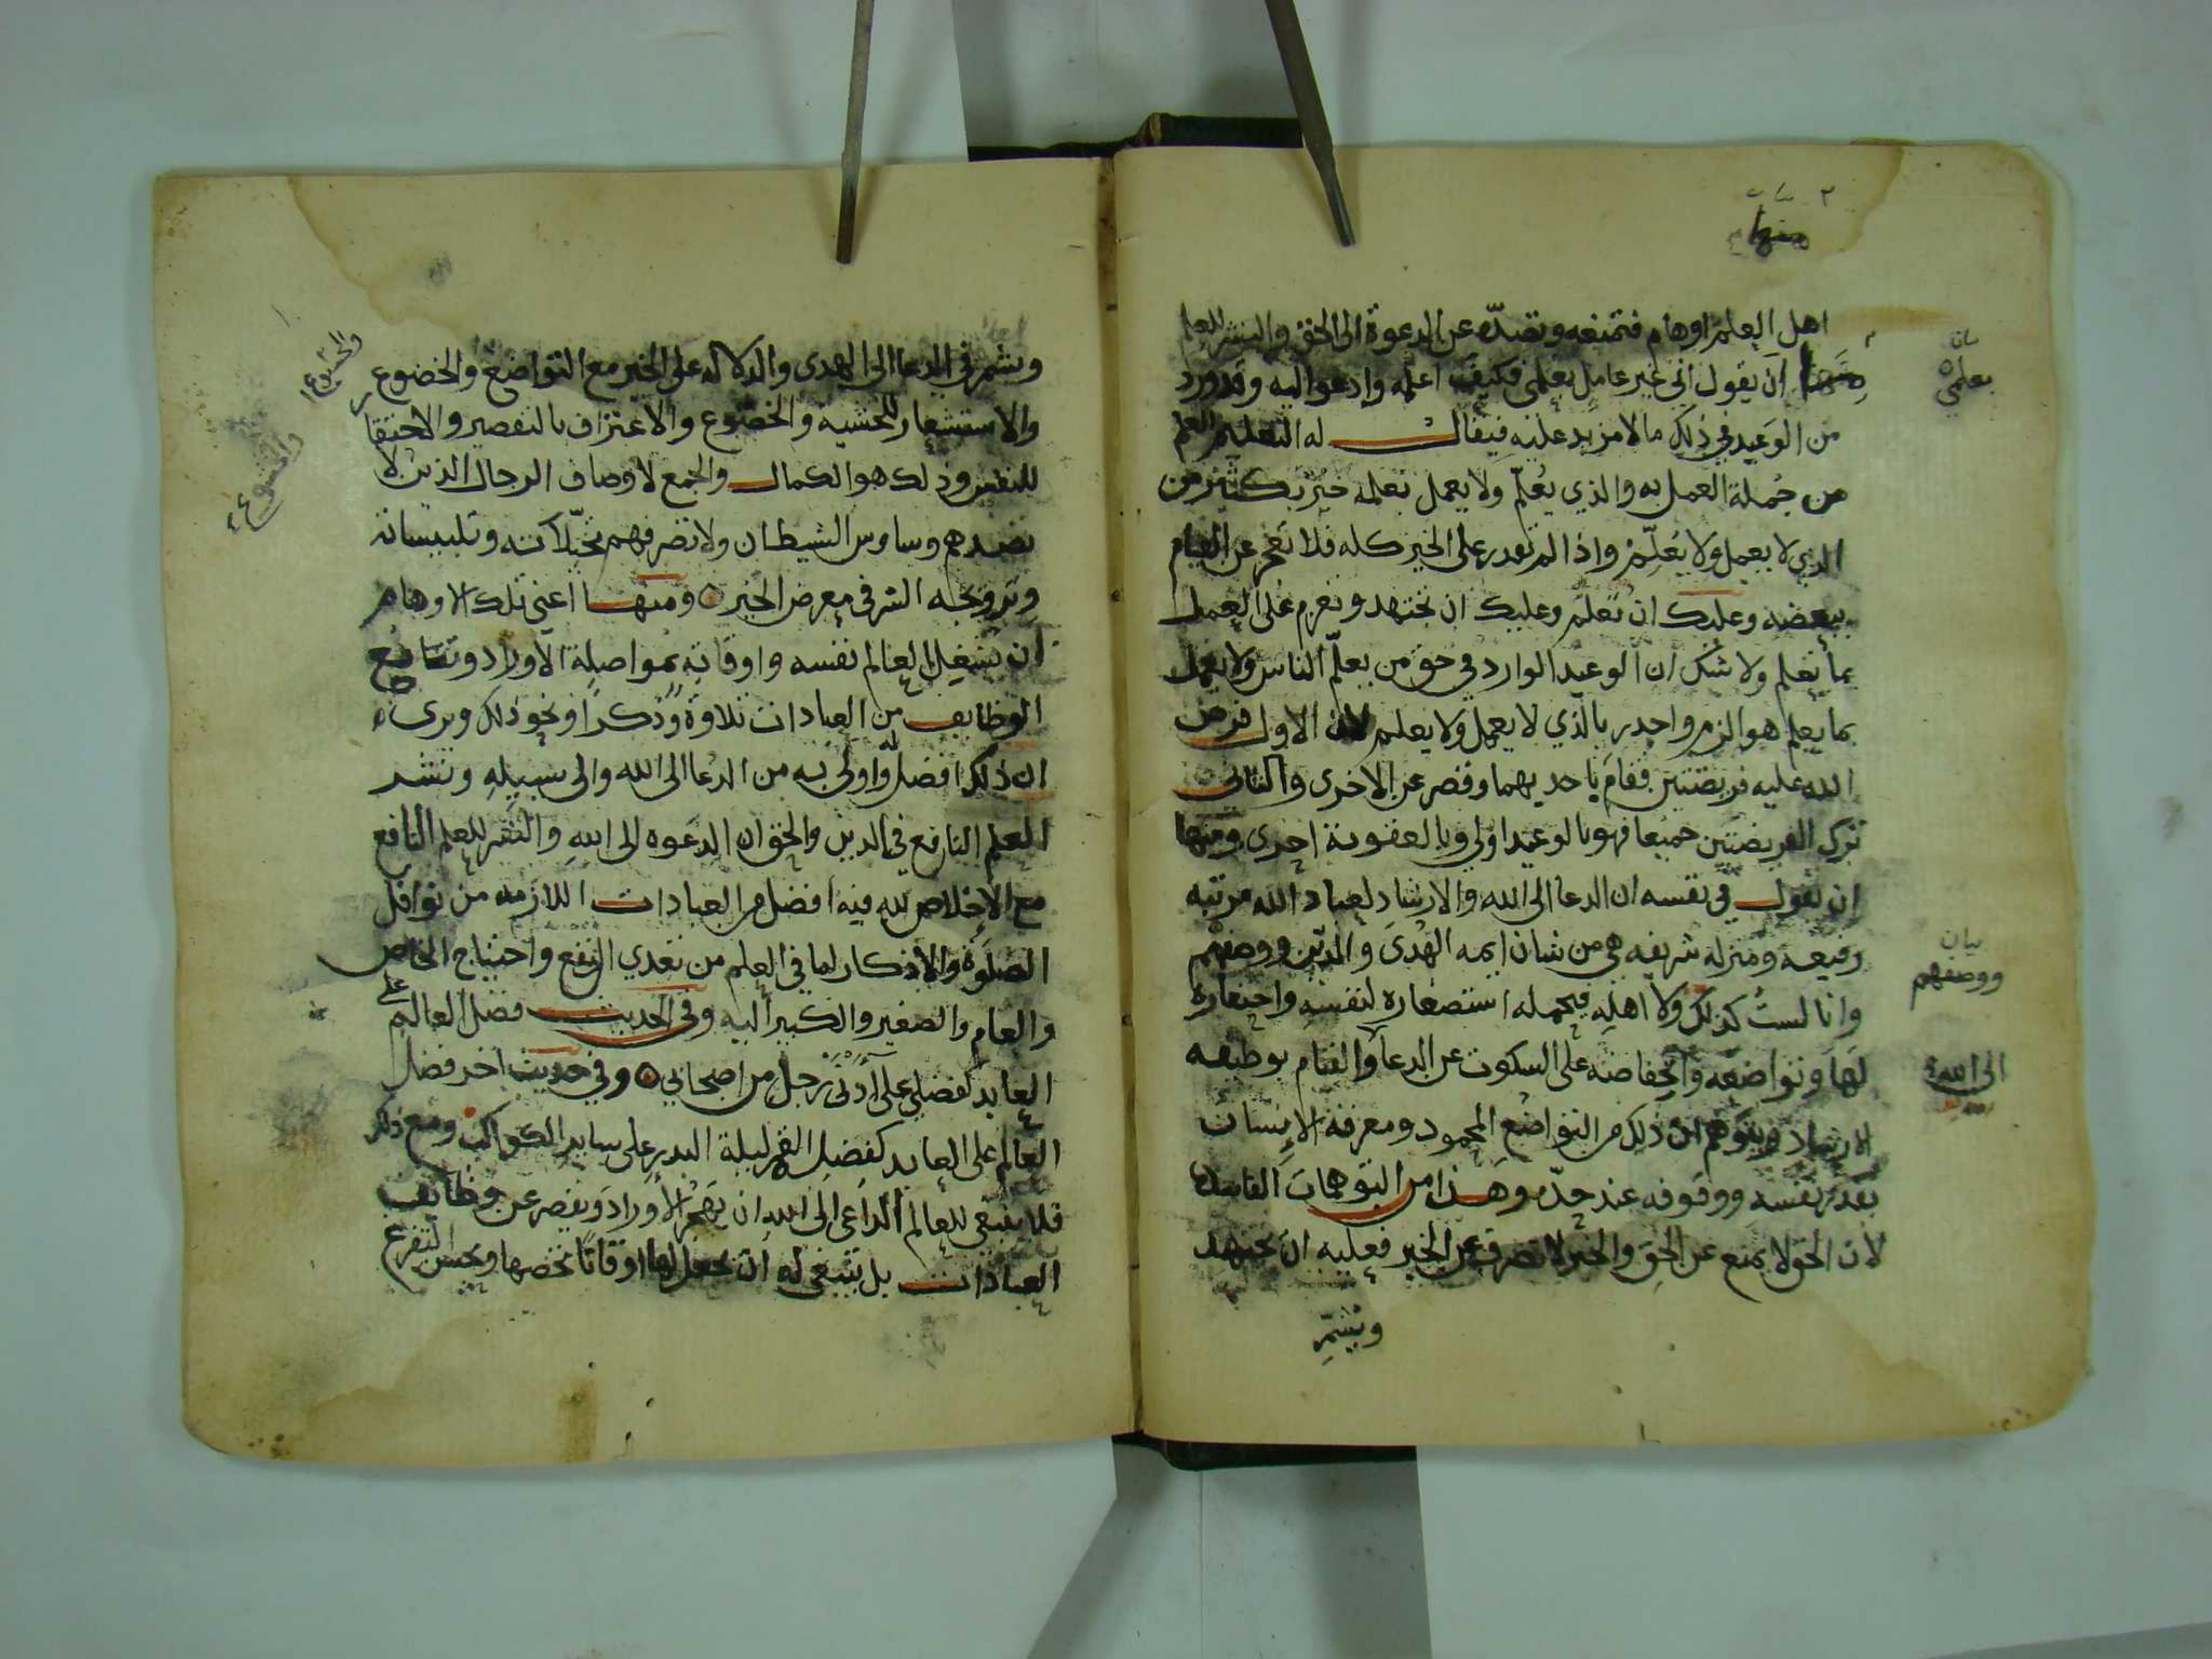 منها
اهل العلم اوهام فتمنعه وتصده عن الدعوة الى الحق والنشر للعلم
منها ان يقول اني غير عامل بعلمي فكيف اعلمه وادعوا اليه وقد ورد
من الوعيد في ذلك ما لا مزيد عليه فيقال له التعليم للعلم
من جملة العمل به والذي يعلّم ولا يعمل بعلمه خير بكثير من
الذي لا يعمل ولا يعلّم واذا لم تقدر على الخير كله فلا تعجز عن القيام
ببعضه وعليك ان تعلم وعليك ان تجتهد وتعزم على العمل
بما تعلم ولا شك ان الوعيد الوارد في حق من يعلّم الناس ولا يعمل
بما يعلم هو الزم واجدر بالذي لا يعمل ولا يعلم لان الاول فرض
الله عليه فريضتين فقام باحديهما وقصر عن الاخرى والثاني
ترك الفريضتين جميعا فهو بالوعيد اولى وبالعقوبة احرى ومنها
ان يقول في نفسه ان الدعا الى الله والارشاد لعباد الله مرتبه
رفيعه ومنزله شريفه هي من شان ايمه الهدى والدين ووصفهم
وانا لست كذلك ولا اهله فيحمله استصغاره لنفسه واحتقاره
لها وتواضعه وانخفاضه على السكوت عن الدعا والقيام بوظيفه
الارشاد ويتوهم ان ذلك من التواضع المحمود ومعرفه الانسان
بقدر نفسه ووقوفه عند حدّه وهذا من التوهمات الفاسده
لان الحق لا يمنع عن الحق والخير لا يصرف عن الخير فعليه ان يجتهد
ويشمّر
بيان
بعلمي
بيان
ووصفهم
الى الله
ويشمر في الدعا الى الهدى والدلاله على الخير مع التواضع والخضوع
والاستشعار للخشيه والخضوع والاعتراف بالتقصير والاحتقار
للنفس وذلك هو الكمال والجمع لاوصاف الرجال الذين لا
تصدهم وساوس الشيطان ولا تصرفهم تخيّلاته وتلبيساته
وترويجه الشر في معرض الخير ومنها اعني تلك الاوهام
ان يشغل العالم نفسه واوقاته بمواصلة الاوراد وتتابع
الوظايف من العبادات تلاوة وذكرا ونحو ذلك ويرى
ان ذلك افضل واولى به من الدعا الى الله والى سبيله ونشر
العلم النافع في الدين والحق ان الدعوه الى الله والنشر للعلم النافع
مع الاخلاص لله فيه افضل من العبادات اللازمه من نوافل
الصلوة والاذكار لما في العلم من تعدي النفع واحتياج الخاص
والعام والصغير والكبير اليه وفي الحديث فضل العالم على
العابد كفضلي على أدنى رجل من اصحابي وفي حديث اخر فضل
العالم على العابد كفضل القمر ليلة البدر على ساير الكواكب ومع ذلك
فلا ينبغي للعالم الداعي الى الله ان يهجر الاوراد ويقصر عن وظايف
العبادات بل ينبغي له ان يجعل لها اوقاتا تخصها ويحسن التفرغ
والخشوع
والخشوع